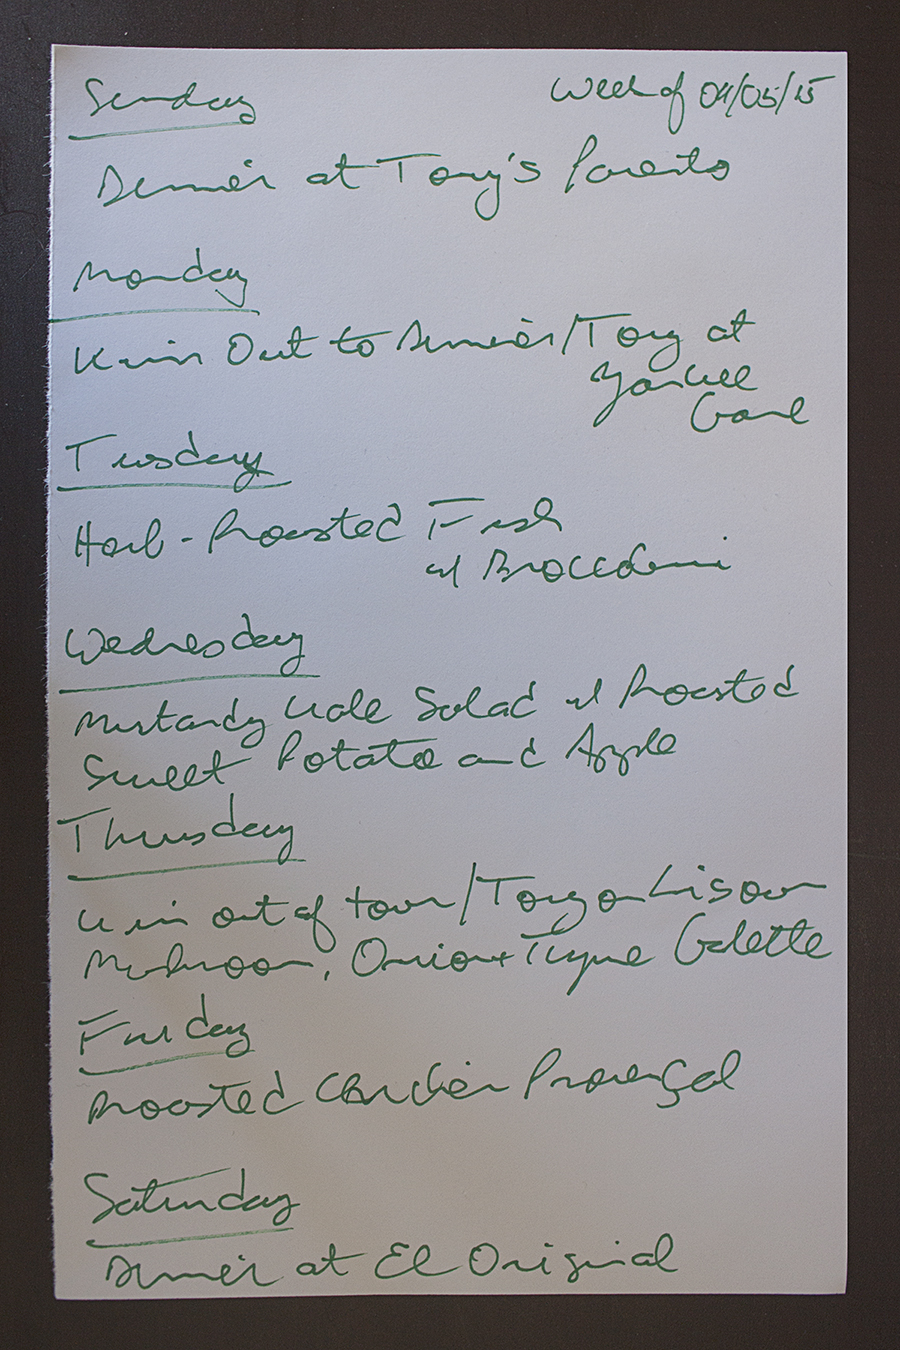 Sunday
Week of 04/05/15
Dinner at Tony's Parents
Monday
Kevin Out to Dinner/Tony at
Yankee
Game
Tuesday
Herb-Roasted Fish
w/ Broccolini
Wednesday
Mustardy Kale Salad w/ Roasted
Sweet Potato and Apple
Thursday
out of town/Tony on his own
Mushroom, Onion + Thyme Galette
Friday
Roasted Chicken Provençal
Saturday
Dinner at El Original